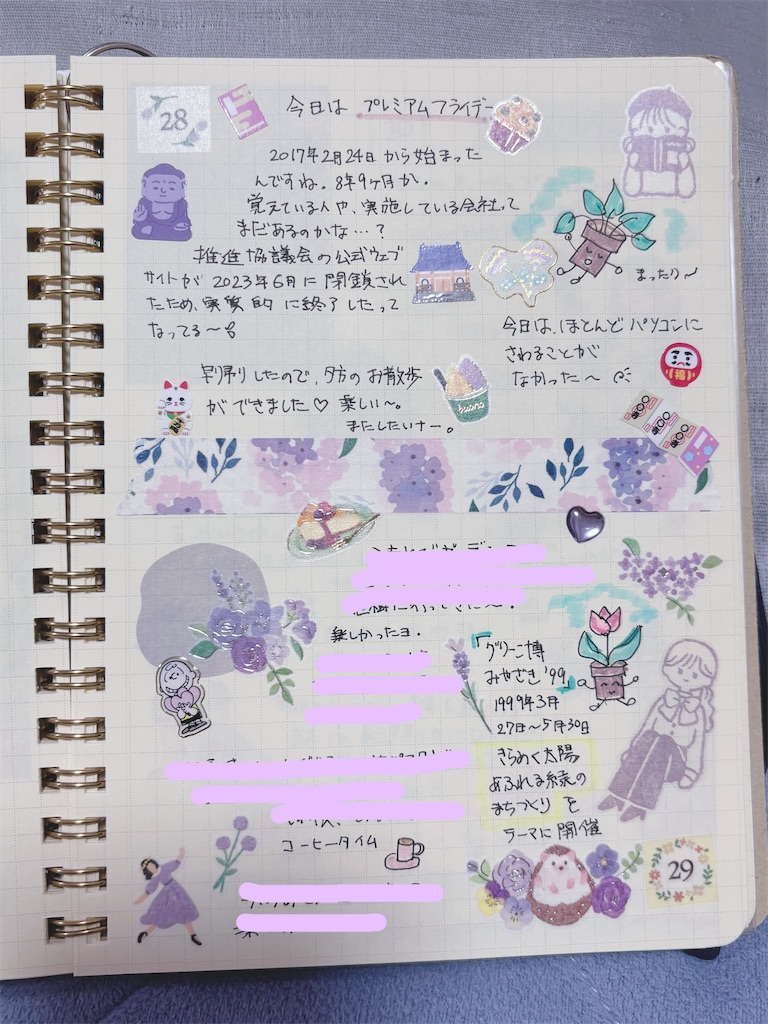 28
今日は プレミアムフライデー
2017年2月24日から始まった
んですね。8年9ヶ月か。
覚えている人や、実施している会社って
まだあるのかな…?
推進協議会の公式ウェブ
サイトが 2023年6月に閉鎖され
たため、実質的に終了したって
なってる〜
まったり〜
今日は、ほとんどパソコンに
さわることが
なかった〜
福
早引りしたので、夕方のお散歩
ができました♡ 楽しい〜。
またしたいナー。
楽しかったヨ。
「グリーン博
みやざき'99」
1999年3月
27日〜5月30日
きらめく太陽
あふれる緑の
まちづくり を
テーマに開催
コーヒータイム
29